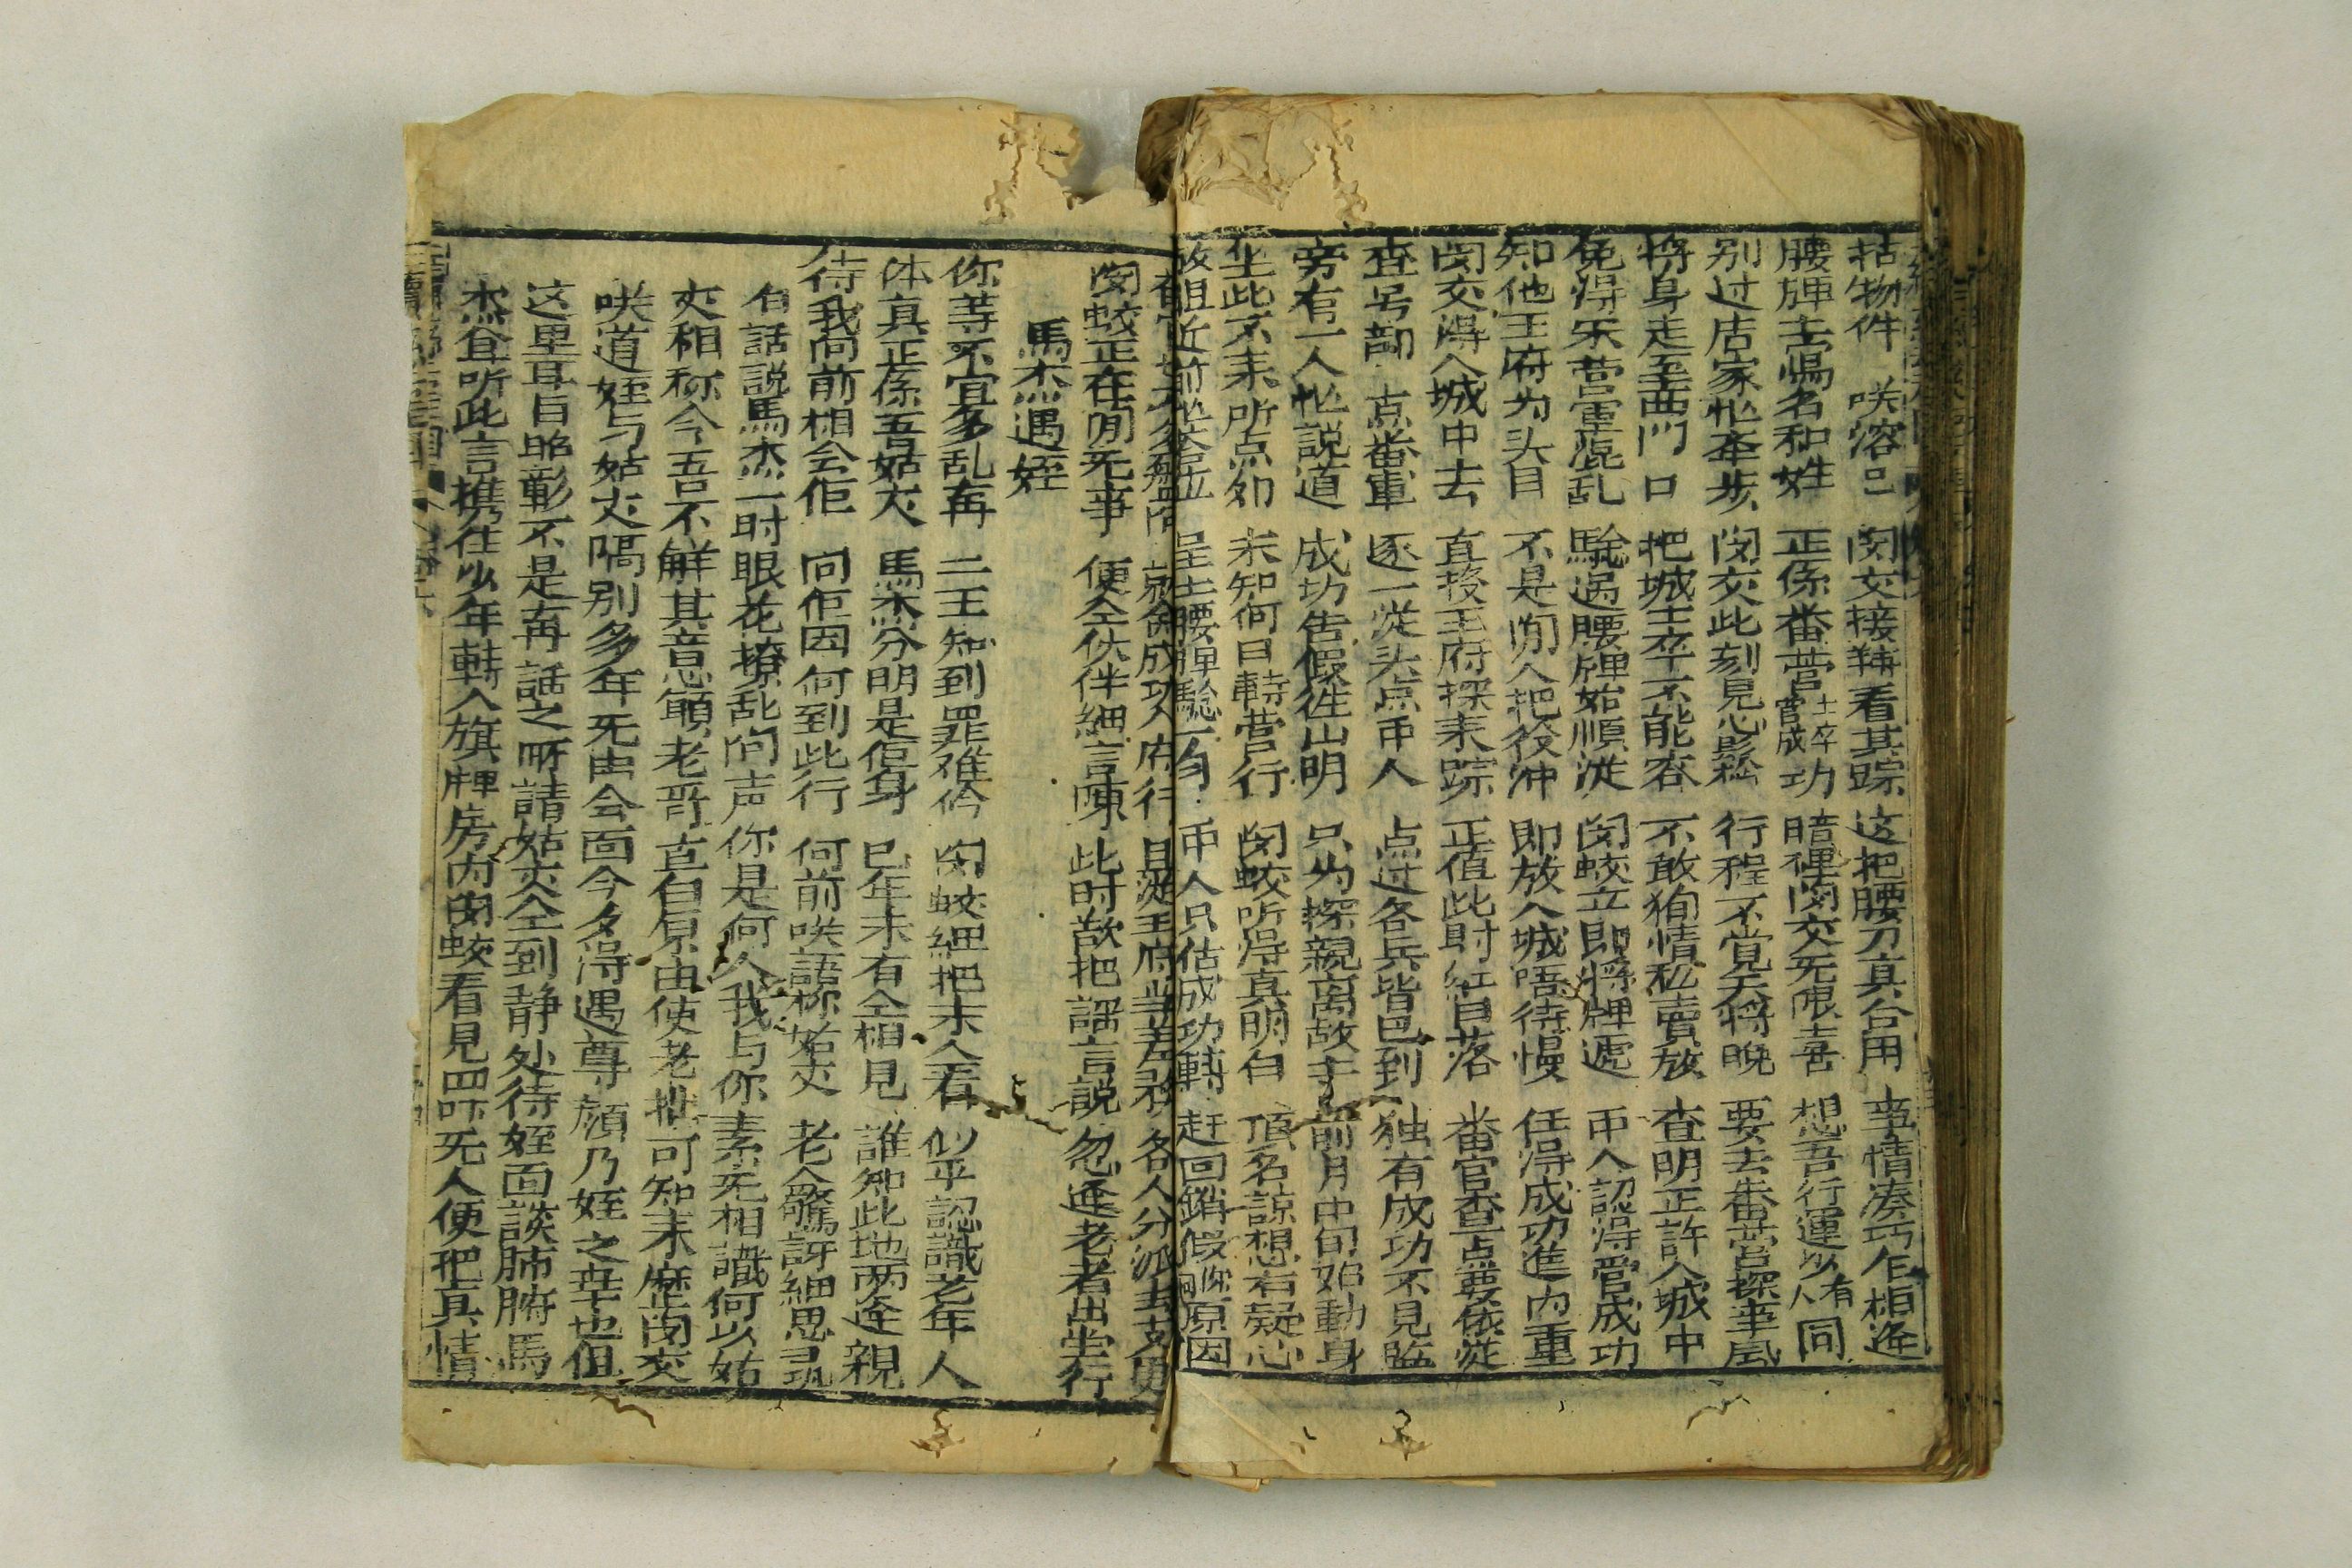 拮物件 咲溶已 閔交接轉看其踪 这把腰刀真合用 事情凑巧乍相逄
腰牌圭愓名和姓 正係番营士卒官成功 暗裡閔交旡限喜 想吾行運以有人同
别过店家忙奔步 閔交此刻見心鬆 行程不觉天将晚 要去番营探事風
将身走至西门口 把城士卒不能容 不敢狥情私賣放 查明正許入城中
免得宋营軍混乱 驗过腰牌始順從 閔蛟立即将牌遞 帀人認得官成功
知他王府为头目 不是閒人把役冲 即放入城唔待慢 任得成功進内重
閔交得入城中去 直投王府探耒踪 正值此時紅日落 番官查点要依從
查号部 点番軍 逐一從头点帀人 点过各兵皆已到 独有成功不見臨
旁有一人忙説道 成功告假徃山明 只为探親离故主 前月中旬始動身
坐此不耒所点卯 未知何日轉营行 閔蛟听得真明白 頂名諒想冇疑心
故且近前忙答应 呈上腰牌驗一匀 帀人只估成功轉 赶回銷假你原因
就命成功入府行 且從王府当差务 各人分派去支更
閔蛟正在閒旡事 便仝伙伴細言陳 此时歆把謡言説 忽逄老者出堂行
馬杰遇姪
你等不宜多乱再 二王知到罪难伶 閔蛟細把耒人看 似乎認識老年人
体真正係吾姑夾 馬杰分明是佢身 已年未有仝相見 誰知此地两逄親
待我向前相会佢 问佢因何到此行 何前咲語称姑丈 老人驚訝細思㝷
冇話説馬杰一时眼花撩乱问声你是何人我与你素旡相識何以姑
丈相称今吾不解其意願老哥直白原由使老拙可知耒歴閔交
咲道姪与姑丈隔别多年旡由会面今夕得遇尊顔乃姪之幸也但
这里耳目昭彰不是再話之所請姑丈仝到静处待姪面談肺腑馬
杰耷听此言携住少年轉入旗牌房内閔蛟看見四吓旡人便把真情